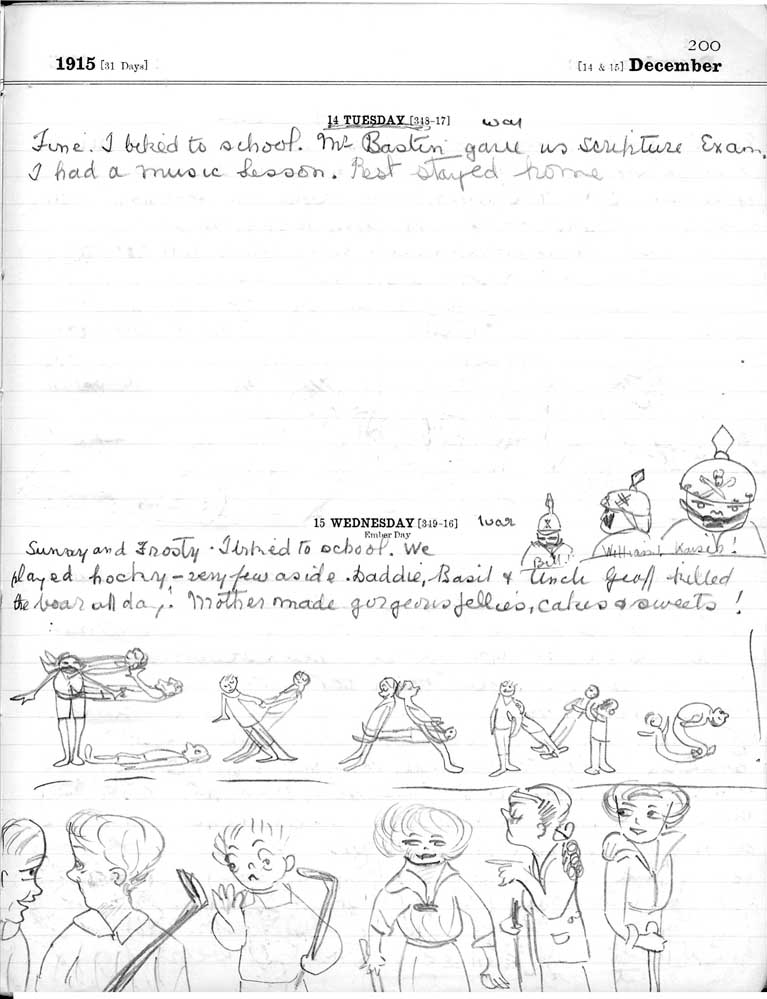 200
1915 [31 Days] [14 & 15] December
14 TUESDAY [348-17] war
Fine. I biked to school. Mr Bastin gave us Scripture Exam.
I had a music lesson. Rest stayed home
15 WEDNESDAY [349-16] war
Ember Day
Bill! William! Kaiser!
Sunny and Frosty. I biked to school. We
played hocky - very few aside. Daddie, Basil & Uncle Geoff killed
the boar all day! Mother made gorgeous jellies, cakes & sweets !